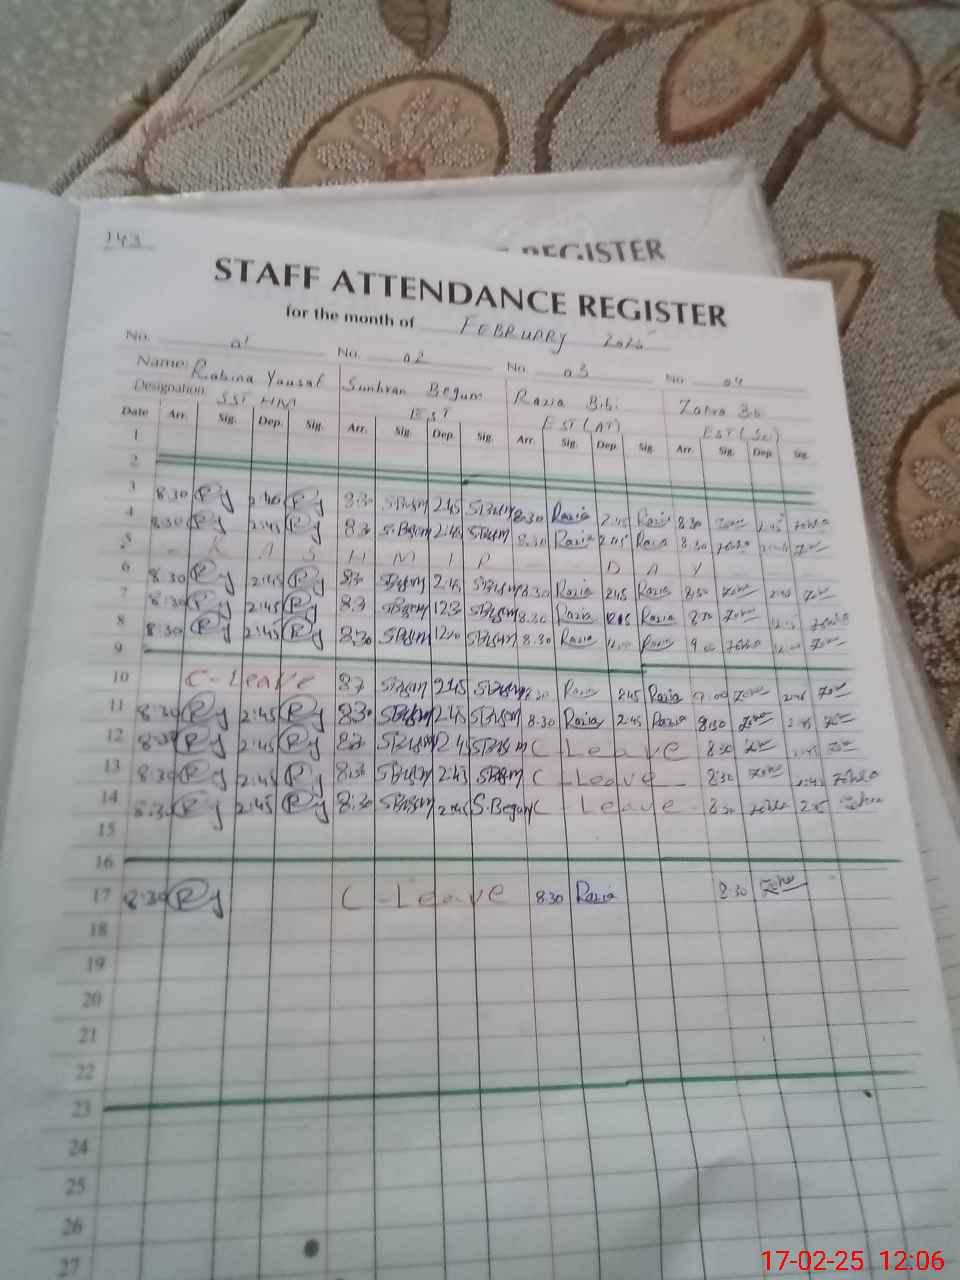 143
REGISTER
STAFF ATTENDANCE REGISTER
for the month of FEBRUARY 2025
No. 01 No. 02 No. 03 No. 04
Name: Rabina Yousaf Begum Razia Bibi Zohra Bi
Designation: SST HM EST EST (AT) EST (Sc)
Date Arr. Sig. Dep. Sig. Arr. Sig. Dep. Sig. Arr. Sig. Dep. Sig. Arr. Sig. Dep. Sig.
1
2
3 8:30 Ry Ry 8:30 SBegum 2:45 SBegum 8:30 Razia 2:45 Razia 8:30 2:45 Zohra
4 8:30 Ry 2:45 Ry 8:30 S.Begum 2:45 SBegum 8:30 Razia 2:45 Razia 8:30 Zohra
5 K A S H M I R D A Y
6 8:30 Ry 2:45 Ry 8:30 SBegum 2:45 SBegum 8:30 Razia 2:45 Razia 8:30
7 8:30 Ry 2:45 Ry 8:30 SBegum SBegum 8:30 Razia Razia 8:30 Zohra
8 8:30 Ry 2:45 Ry 8:30 SBegum SBegum 8:30 Razia Razia 9:00 Zohra
9
10 C-Leave 8:30 SBegum 2:45 SBegum 8:30 Razia 2:45 Razia 9:00
11 8:30 Ry 2:45 Ry 8:30 SBegum 2:45 SBegum 8:30 Razia 2:45 Razia 8:30 2:45
12 8:30 Ry 2:45 Ry 8:30 SBegum 2:45 SBegum C-Leave 8:30 2:45
13 8:30 Ry 2:45 Ry 8:30 SBegum 2:45 SBegum C-Leave 8:30 2:45 Zohra
14 8:30 Ry 2:45 Ry 8:30 SBegum 2:45 S.Begum C-Leave 8:30 Zohra 2:45 Zohra
15
16
17 8:30 Ry C-Leave 8:30 Razia 8:30
18
19
20
21
22
23
24
25
26
27
17-02-25 12:06